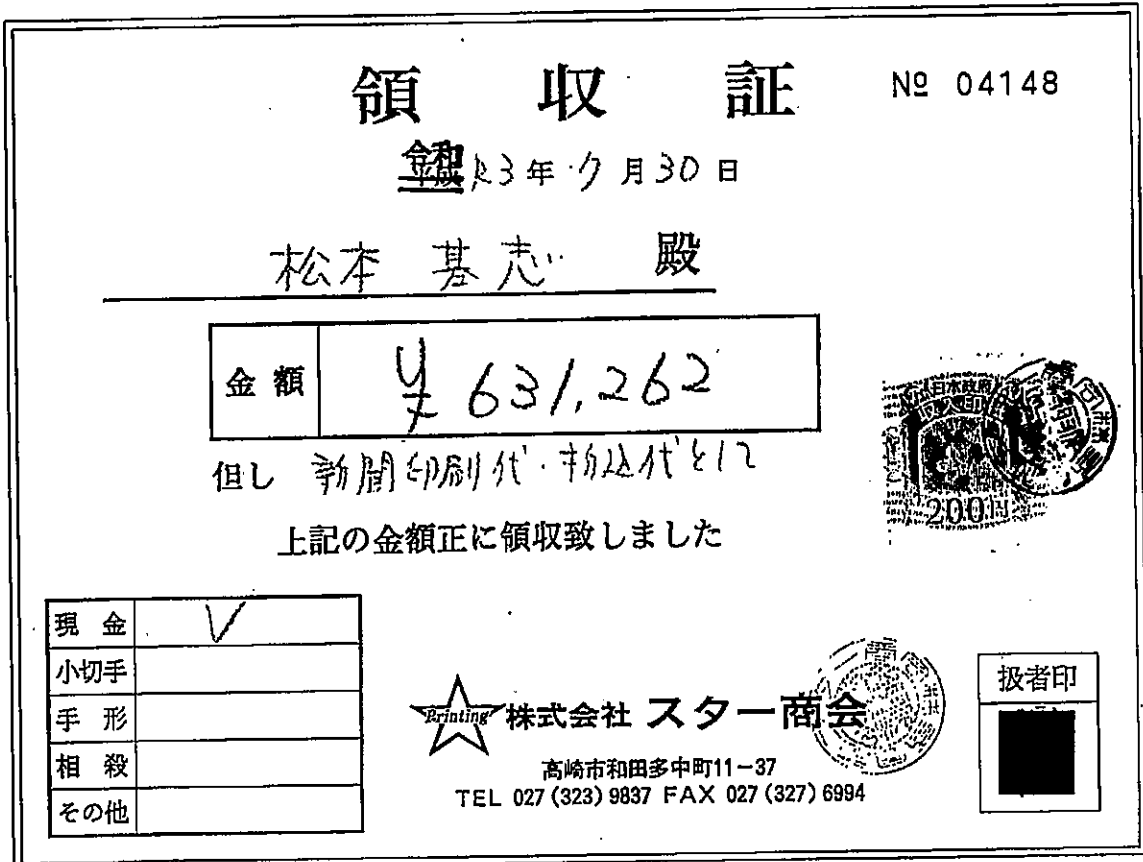 領収証 № 04148
令和 3年 7月30日
松本 基志 殿
金額 ¥631,262
但し 新聞印刷代・折込代として
上記の金額正に領収致しました
日本政府
収入印紙
200円
現金 V
小切手
手形
相殺
その他
Printing 株式会社 スター商会
高崎市和田多中町11-37
TEL 027(323)9837 FAX 027(327)6994
扱者印